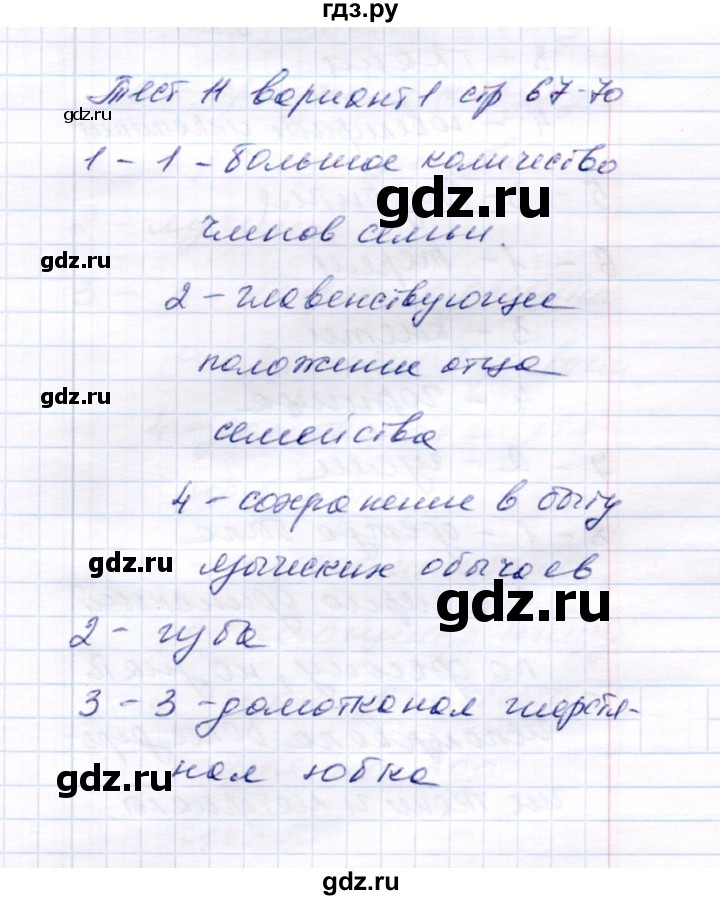 гдз.ру
Тест 11 вариант 1 стр 67-70
gdz.ru
1 - 1 - большое количество
gdz.ru
членов семьи.
gdz.ru
2 - главенствующее
положение отца
gdz.ru
семейства
4 - сохранение в быту
gdz.ru
языческих обычаев
gdz.ru
2 - губа
3 - 3 - домотканая шерстя-
gdz.ru
ная юбка
gdz.ru